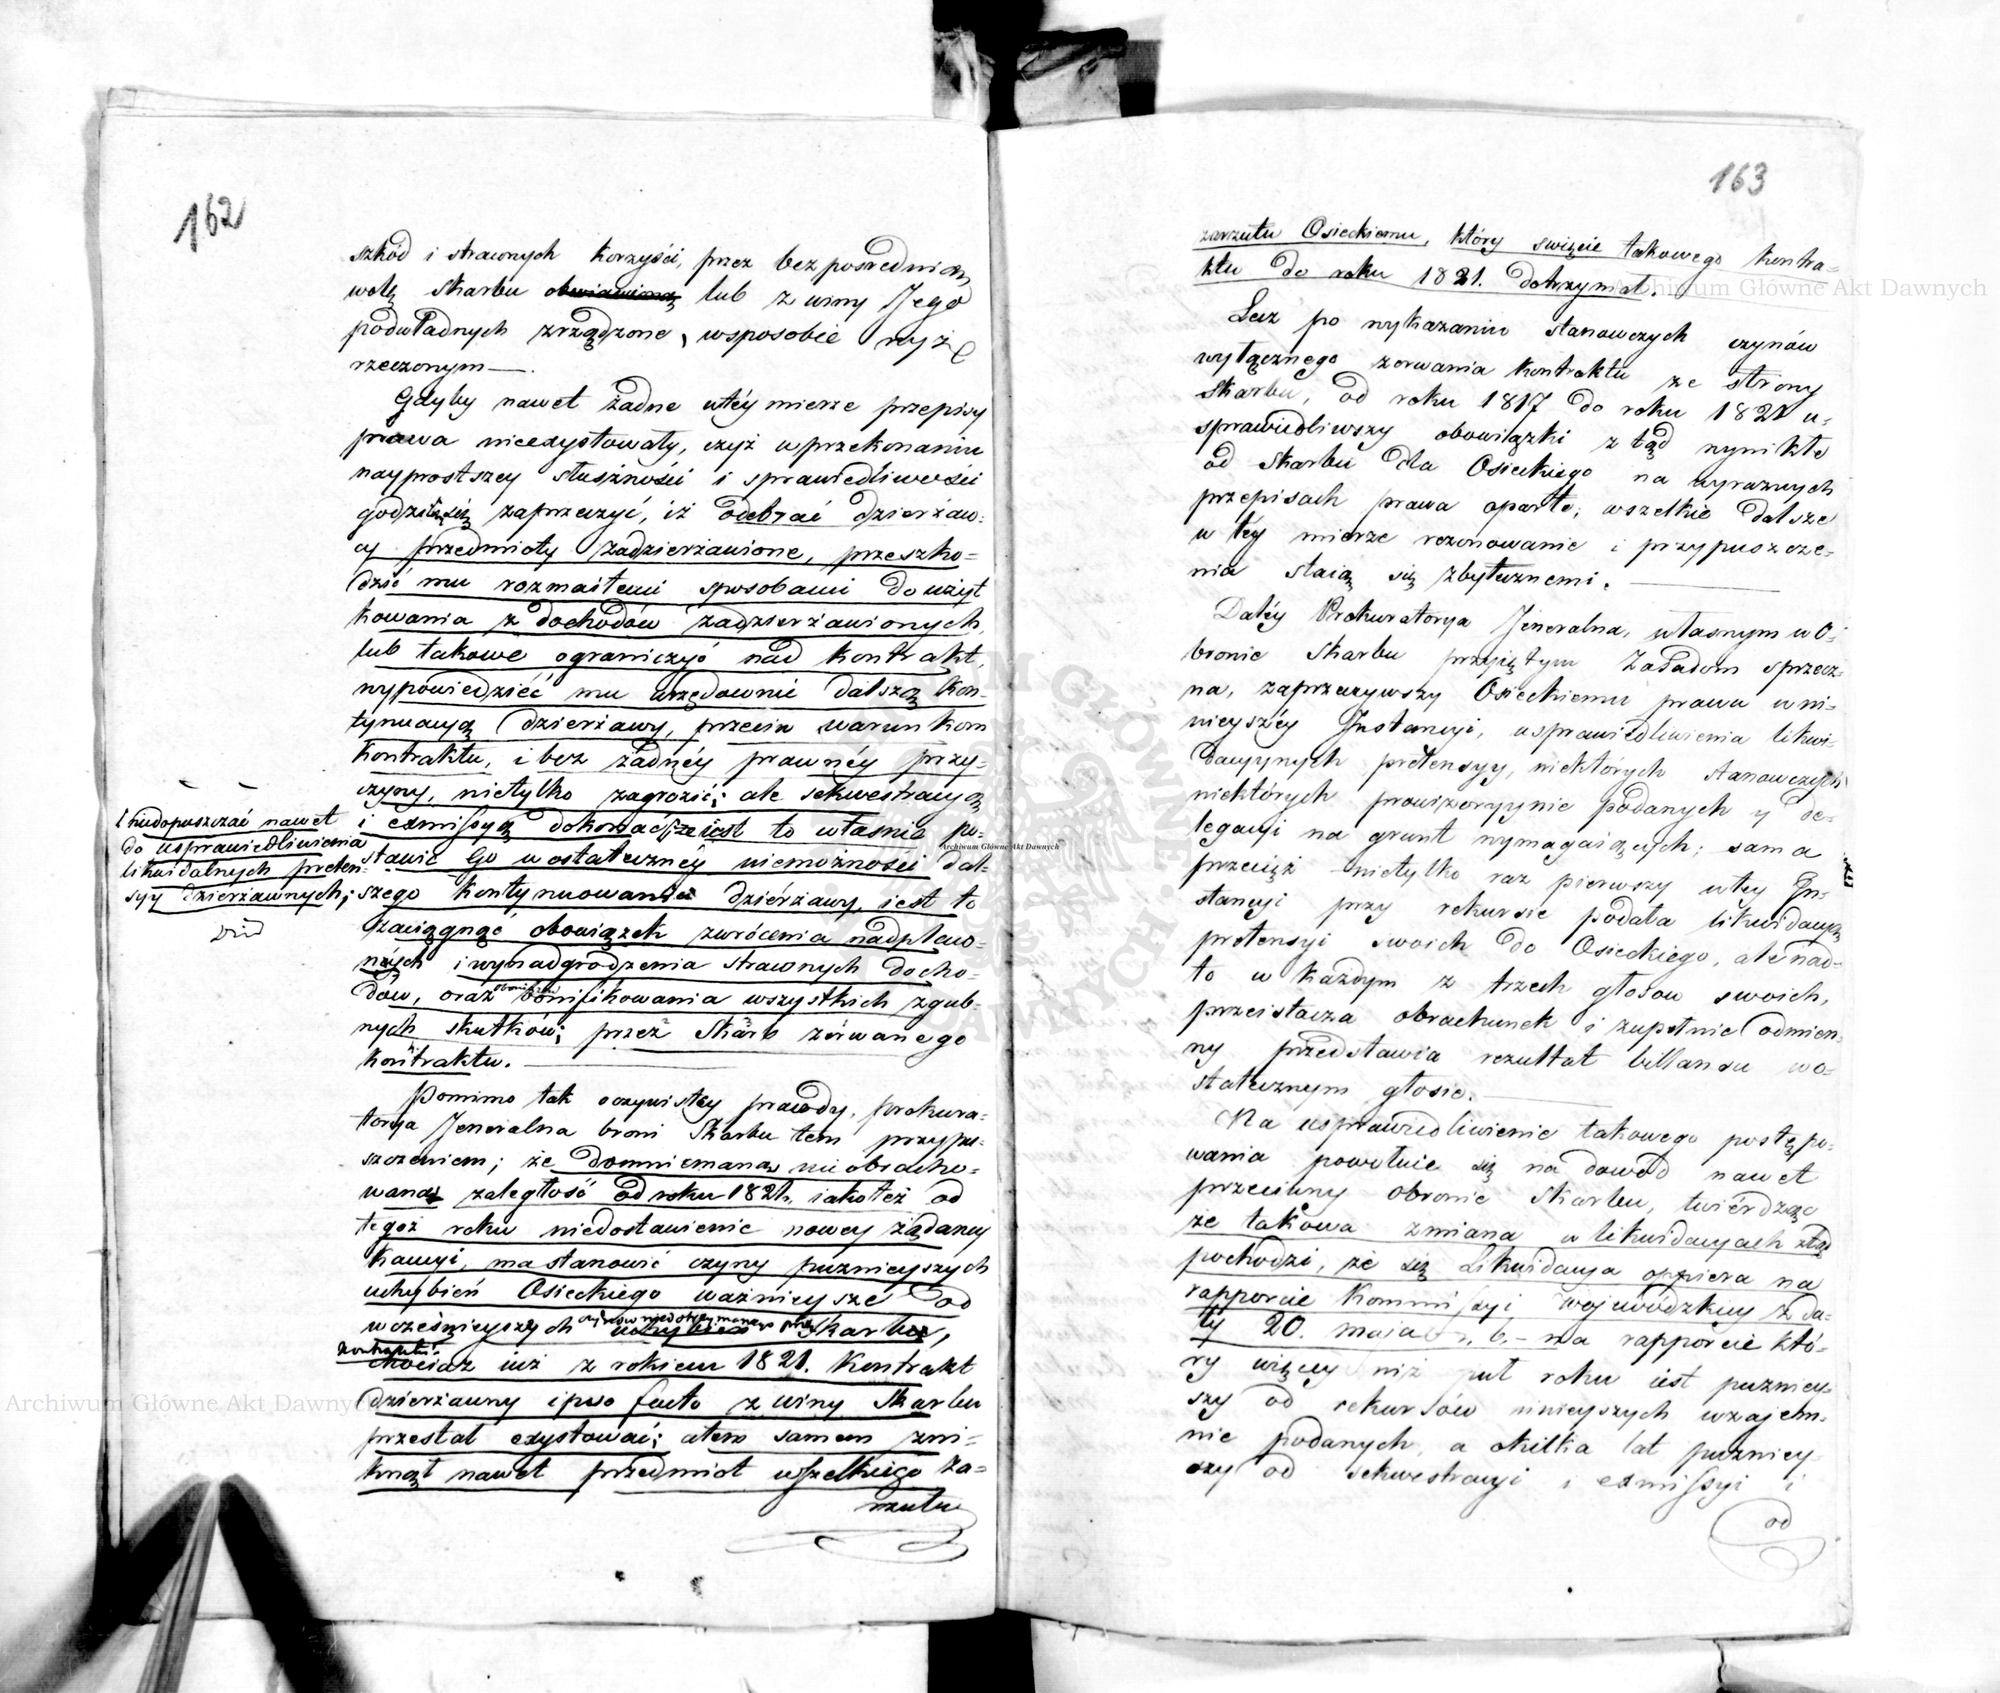 162
szkód i strawnych korzyści, przez bezpośrednią
wolę Skarbu lub z winy Jego
podwładnych zrządzone, wsposobie wyże
rzeczonym —.
Gdyby nawet żadne wtéy mierze przepisy
prawa nieexystowały, czyż wprzekonaniu
nayprostszey słuszności i sprawiedliwości
godziłosię zaprzeczyć, iż odebrać dzierżaw-
cy przedmioty zadzierżawione, przeszko-
dzić mu rozmaitemi sposobami do użyt
kowania z dochodów zadzierżawionych,
lub takowe ograniczyć nad kontrakt,
wypowiedzieć mu urzędownie dalszą kon-
tynuacyą dzierżawy, przeciw warunkom
kontraktu, i bez żadnéy prawnéy przy-
czyny, nietylko zagrozić; ale sekwestracyą
i exmissyą dokonać; jest to własnie po-
stawić Go w ostateczney niemożności dal-
szego kontynuowania dzierżawy, jest to
zaciągnąć obowiązek zwrócenia nadpłaco-
nych i wynadgrodzenia strawnych docho-
dów, oraz bonifikowania wszystkich zgub-
nych skutków; przez Skarb zérwanego
kontraktu.
i niedopuszczać nawet
do usprawiedliwienia
likwidalnych preten-
syy dzierżawnych;
Pomimo tak oczywistey prawdy, prokura-
torya Jeneralna broni Skarbu tem przypu-
szczeniem; że domniemana nieobracho-
wana zaległość od roku 1821. iakoteż od
tegoż roku niedostawienie nowey żądaney
kaucyi, ma stanowić czyny puznieyszych
uchybień Osieckiego ważnieysze od
wcześnieyszych czynów niedotrzymanego przez Skarb,
kontraktu.
chociaż iuż z rokiem 1821. kontrakt
dzierżawny ipso facto z winy Skarbu
przestał exystować; a tem samem zni-
knął nawet przedmiot wszelkiego za-
rzutu
163
zarzutu Osieckiemu, który swięcie takowego kontra-
ktu do roku 1821. dotrzymał.
Lecz po wykazaniu stanowczych czynów
wyłącznego zerwania kontraktu ze strony
Skarbu, od roku 1817 do roku 1821 u-
sprawiedliwszy obowiązki z tąd wynikłe
od Skarbu dla Osieckiego na wyraznych
przepisach prawa oparte, wszelkie dalsze
w téy mierze rezonowanie i przypuszcze-
nia staią się zbytecznemi.
Daléy Prokuratorya Jeneralna, własnym w O-
bronie Skarbu przyiętym Zasadom sprzecz-
na, zaprzeczywszy Osieckiemu prawa w ni-
nieyszéy Instancyi, usprawiedliwienia likwi-
dacyynych pretensyy, niektórych stanowczych
niektórych prowizoryynie podanych y de-
legacyi na grunt wymagaiących; sama
przecięż nietylko raz pierwszy wtey In-
stancyi przy rekursie podała likwidacyą
pretensyi swoich do Osieckiego, ale nad-
to w każdym z trzech głosow swoich,
przeistacza obrachunek i zupełnie odmien-
ny przedstawia rezultat billansu wo-
statecznym głosie.
Na usprawiedliwienie takowego postępo-
wania powołuie się na dowód nawet
przeciwny obronie Skarbu, twiérdząc
że takowa zmiana w likwidacyach ztąd
pochodzi, że się Likwidacya oppiera na
rapporcie Kommissyi Wojewódzkiey z da-
ty 20. maia r. b. – na rapporcie któ-
ry więcey niż puł roku iest puzniey-
szy od rekursów ninieyszych wzajem-
nie podanych, a okilka lat pozniey-
szy od sekwestracyi i exmissyi i
od
Archiwum Główne Akt Dawnych
Archiwum Główne Akt Dawnych
Archiwum Główne Akt Dawnych